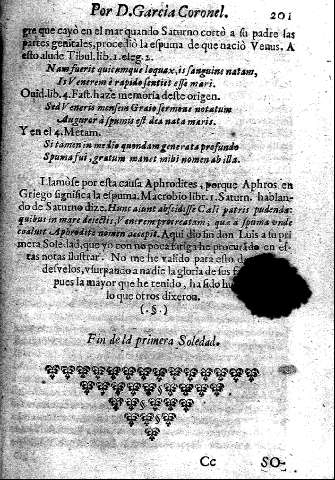 Por D. Garcia Coronel. 201
gre que cayò en el mar quando Saturno cortò a su padre las
partes genitales, procediò la espuma de que naciò Venus. A
esto alude Tibul. lib. 1. eleg. 2.
Nam fuerit quicumque loquax, is sanguine natam,
Is Venerem è rapido sentiet esse mari.
Ouid. lib. 4. Fast. haze memoria deste origen.
Sed Veneris mensem Graio sermone notatum
Auguror à spumis est dea nata maris.
Y en el 4. Metam.
Si tamen in medio quondam generata profundo
Spuma fui, gratum manet mihi nomen ab illa.
Llamose por esta causa Aphrodites, porque Aphros en
Griego significa la espuma. Macrobio lib. 1. Saturn. hablan-
do de Saturno dize. Hunc aiunt abscidisse Cæli patris pudenda:
quibus in mare deiectis, Venerem procreatam; quæ à spuma vnde
coaluit Aphrodite nomen accepit. Aqui diò fin don Luis a su pri
mera Soledad, que yo con no poca fatiga he procurado en es-
tas notas ilustrar. No me he valido para esto
desvelos, vsurpando a nadie la gloria de sus
pues la mayor que he tenido, ha sido
lo que otros dixeron.
(.§.)
Fin de la primera Soledad.
Cc SO-